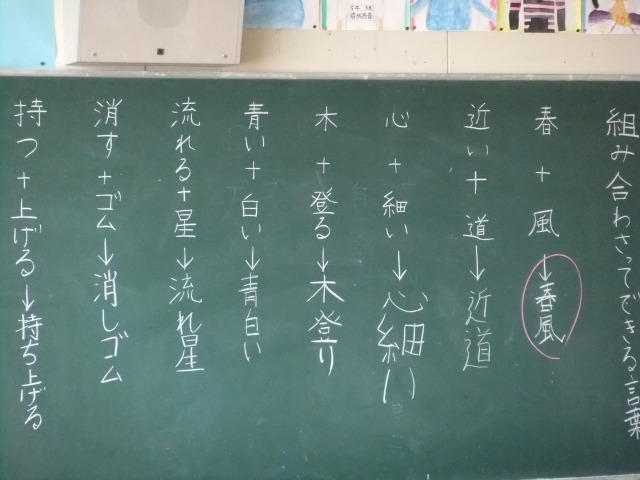 組み合わさってできる言葉
春+風→春風
近い+道→近道
心+細い→心細い
木+登る→木登り
青い+白い→青白い
流れる+星→流れ星
消す+ゴム→消しゴム
持つ+上げる→持ち上げる